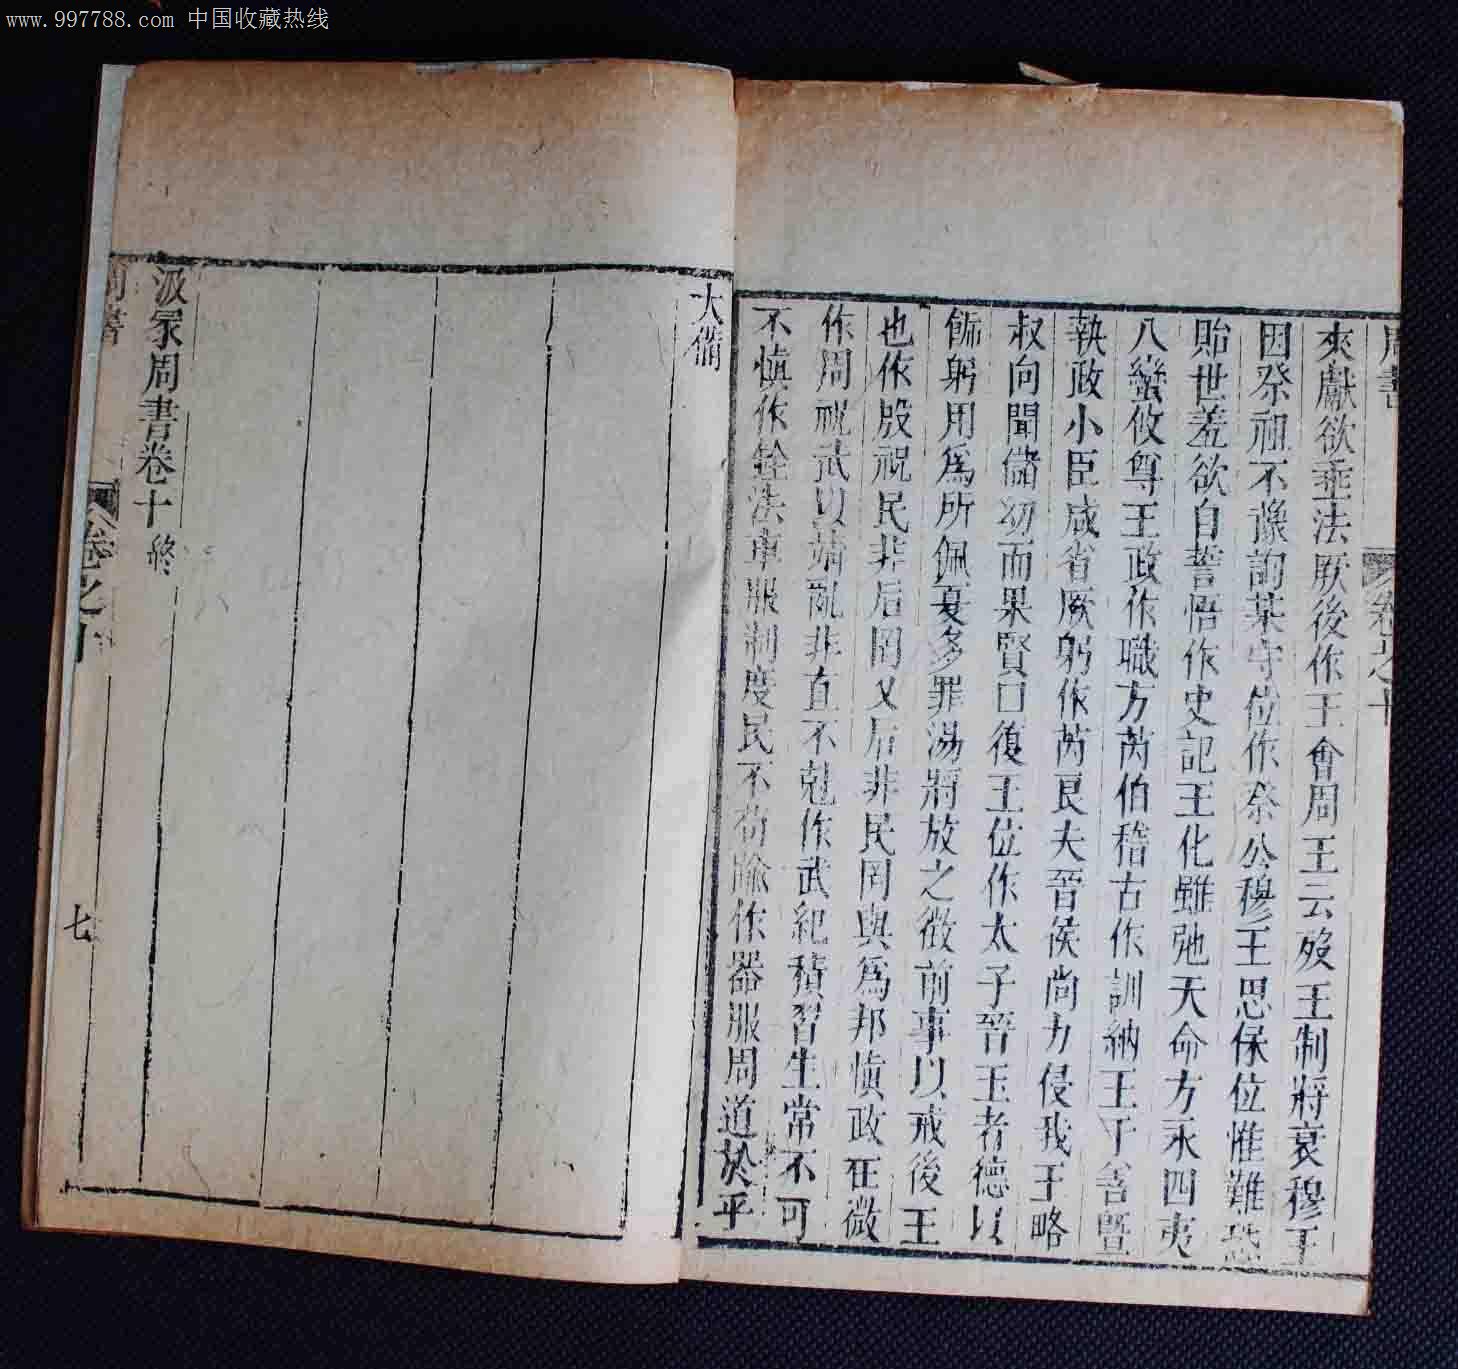 www.997788.com 中国收藏热线
周書
卷之十
夾獻欲垂法厥後作王會周王云殁王制將衰穆王
因祭祖不豫詢某守位作祭公穆王思保位惟難恐
貽世羞欲自警悟作史記王化雖弛天命方永四夷
八蠻攸尊王政作職方芮伯稽古作訓納王于善暨
執政小臣咸省厥躬作芮良夫晉侯尚力侵我王略
叔向聞儲幼而果賢口復王位作太子晉王者德以
飾躬用爲所佩夏多罪湯將放之徵前事以戒後王
也作殷祝民非后罔乂后非民罔與爲邦慎政在微
作周祝武以靖亂非直不尅作武紀積習生常不可
不慎作銓法車服制度民不苟踰作器服周道於乎
大備
汲冢周書卷十終
周書
卷之十
七